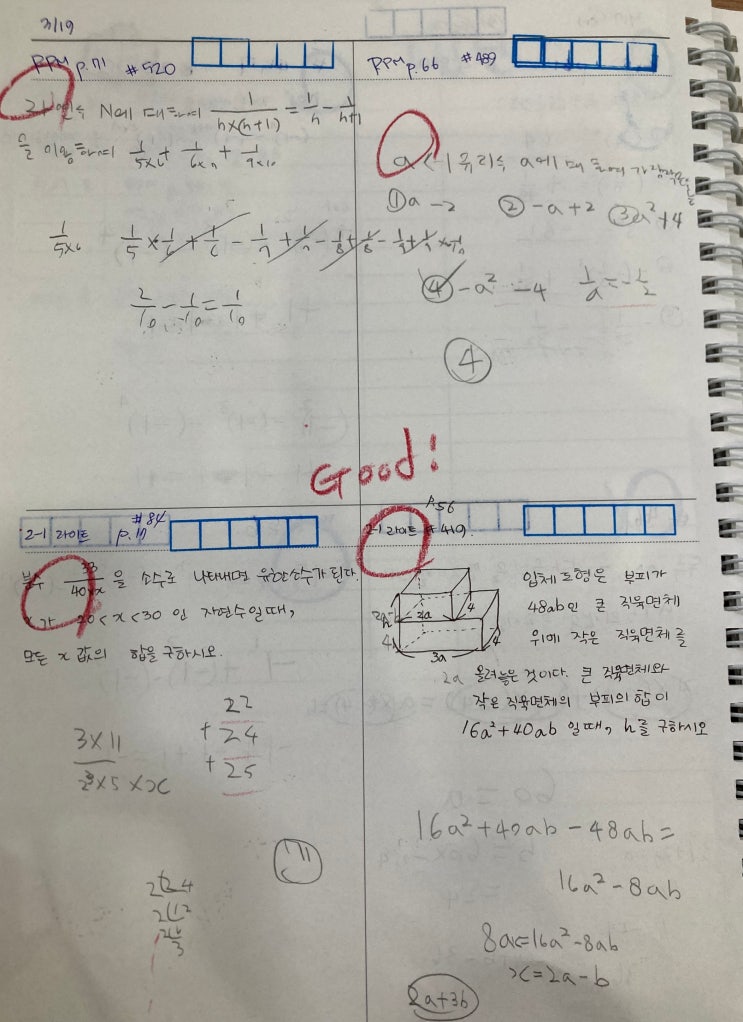 3/19
RPM p.71 #520
자연수 N에 대하여 1/(n×(n+1)) = 1/n - 1/(n+1)
을 이용하여 1/(5×6) + 1/(6×7) + 1/(9×10)
1/(5×6) 1/5 × 1/6 + 1/6 - 1/7 + 1/7 - 1/8 + 1/8 - 1/9 + 1/9 × 1/10
2/10 - 1/10 = 1/10
RPM p.66 #489
a<-1 유리수 a에 대하여 가장 작은
① a-2 ② -a+2 ③ a²+4
④ -a²-4 1/a = -1/2
④
Good!
2-1 라이트 p.19 #84
분수 33/(40×x) 을 소수로 나타내면 유한소수가 된다.
x가 20<x<30 인 자연수일때,
모든 x값의 합을 구하시오.
3×11/(2³×5×x)
22
+24
+25
71
2(24
2(12
2(6
3
p.56
2-1 라이트 #419
입체도형은 부피가
48ab인 큰 직육면체
위에 작은 직육면체를
올려놓은 것이다. 큰 직육면체와
작은 직육면체의 부피의 합이
16a²+40ab 일때, h를 구하시오
h 2a 4
4
3a
2a
16a²+40ab-48ab=
16a²-8ab
8ax=16a²-8ab
x=2a-b
2a+3b